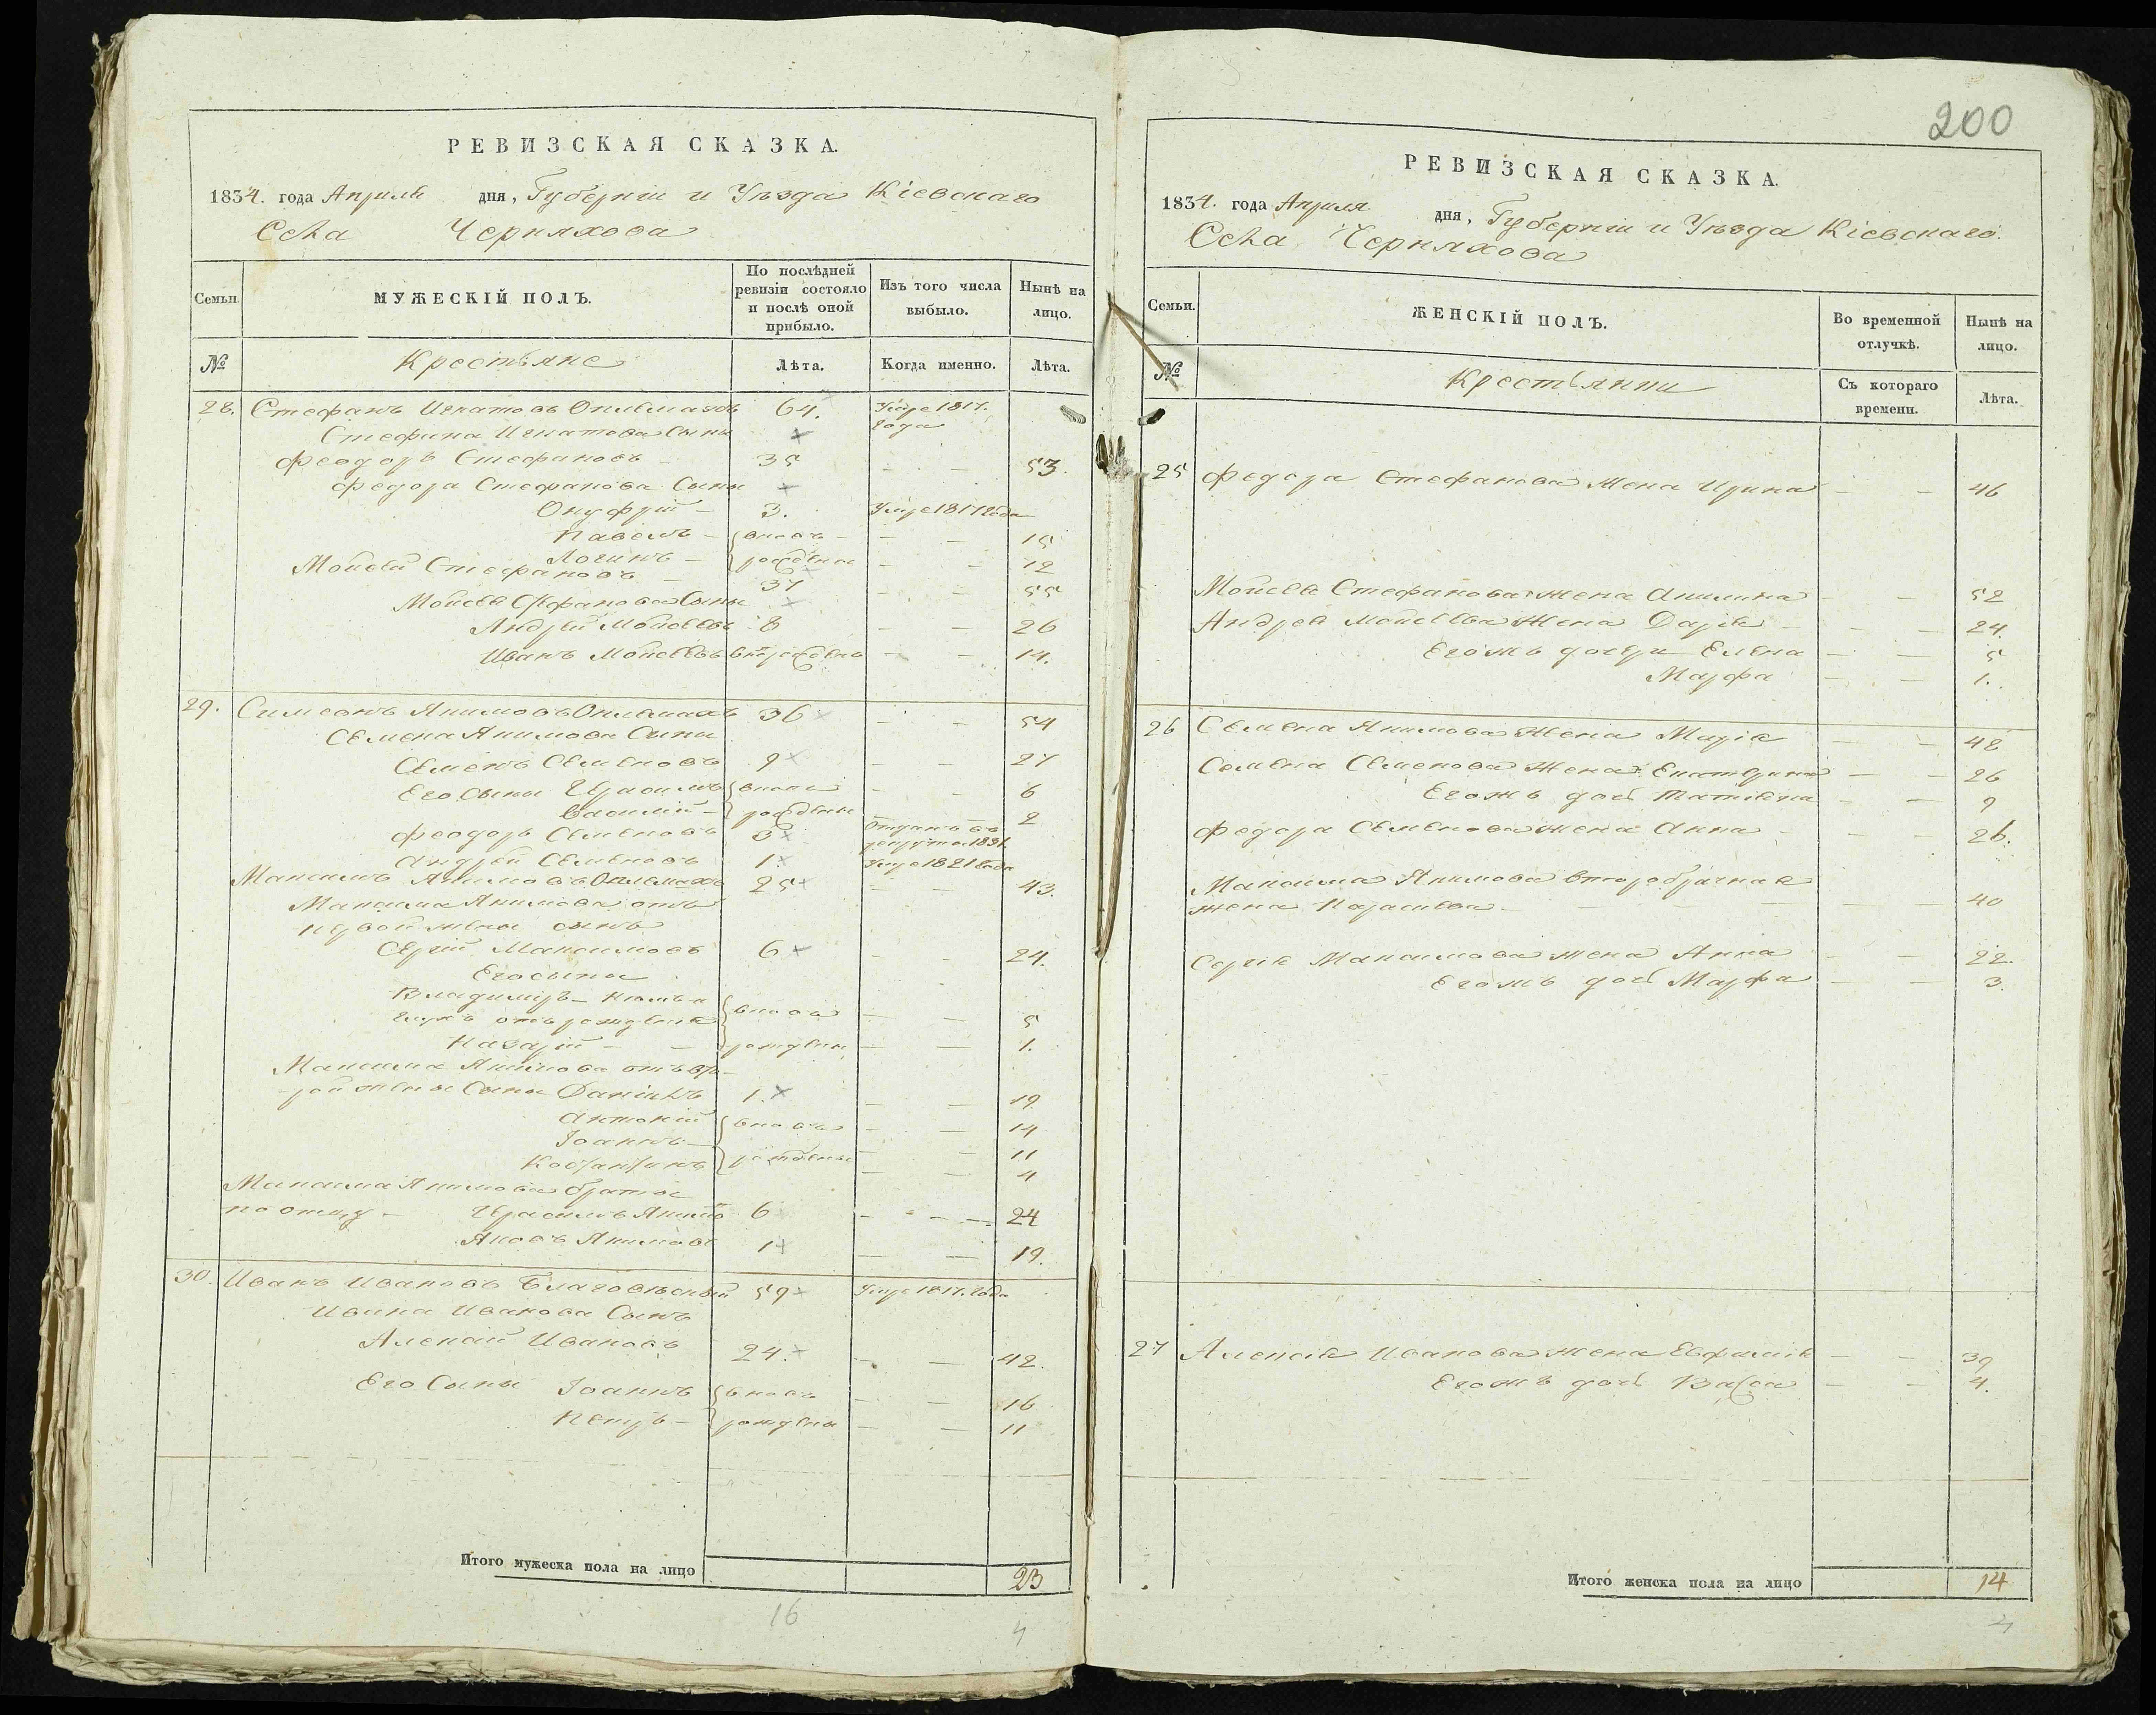 РЕВИЗСКАЯ СКАЗКА.
1834. года Апреля дня, Губерніи и Уѣзда Кіевскаго
Села Черняхова
Семьи.
МУЖЕСКІЙ ПОЛЪ.
По послѣдней ревизіи состояло и послѣ оной прибыло.
Изъ того числа выбыло.
Нынѣ на лицо.
№
Крестьяне
Лѣта.
Когда именно.
Лѣта.
28. Стефанъ Игнатовъ 64. Умре 1817. года
Стефана Игнатова Сыны
Феодоръ Стефановъ 35 - - 53.
Федора Стефанова Сыны
Онуфрій - 3. Умре 1817 года
Павелъ - вновь - - 15
Логинъ - рожденые - - 12
Мойсей Стефановъ - 37 - - 55
Мойсея Стефанова Сыны
Андрей Мойсеевъ 8 - - 26
Иванъ Мойсеевъ - - 14.
29. Симеонъ Якимовъ 36 - - 54
Семена Якимова Сыны
Семенъ Семеновъ 9 - - 27
Его Сыны Герасимъ вновь - - 6
Василій - рождены - - 2
Феодоръ Семеновъ 3 Отданъ въ рекруты 1831.
Андрей Семеновъ 1. Умре 1821 года
Максимъ Якимовъ 25 - - 43.
Максима Якимова отъ
первой жены сынъ
Сергій Максимовъ 6 - - 24.
Его сыны
Владимиръ - Нѣмъ и
глухъ отъ рожденія вновь - - 5
Назарій - - рожден. - - 1.
Максима Якимова отъ вто-
рой жены Сыны Даніилъ 1. - - 19.
Антоній вновь - - 14
Іоаннъ - - - 11
Костантинъ рождены - - 4
Максима Якимова братья
по отцу - Герасимъ 6 - - - 24
Яковъ Якимовъ 1 - - 19.
30. Иванъ Ивановъ 59 Умре 1817. года
Ивана Иванова Сынъ
Алексій Ивановъ 24. - - 42.
Его Сыны Іоаннъ вновь - - 16
Петръ - рождены - - 11
Итого мужеска пола на лицо 23
16
4
200
РЕВИЗСКАЯ СКАЗКА.
1834. года Апреля дня, Губерніи и Уѣзда Кіевскаго.
Села Черняхова
Семьи.
ЖЕНСКІЙ ПОЛЪ.
Во временной отлучкѣ.
Нынѣ на лицо.
№
Крестьянки
Съ котораго времени.
Лѣта.
25 Федора Стефанова Жена Ирина - - 46
Мойсея Стефанова жена Акилина - - 52
Андрея Мойсеева Жена Дарія - - 24.
Егожъ дочери Елена - - 5
Марфа - - 1.
26 Семена Якимова Жена Марія - - 48
Семена Семенова Жена Екатерина - - 26
Егожъ дочь Татіяна - - 9
Федора Семенова жена Анна - - 26.
Максима Якимова второбрачная
жена Параскева - - - 40
Сергія Максимова жена Анна - - 22.
Егожъ дочь Марфа - - 3.
27 Алексія Иванова жена Евфимія - - 39
Егожъ дочь Васса - - 4.
Итого женска пола на лицо 14